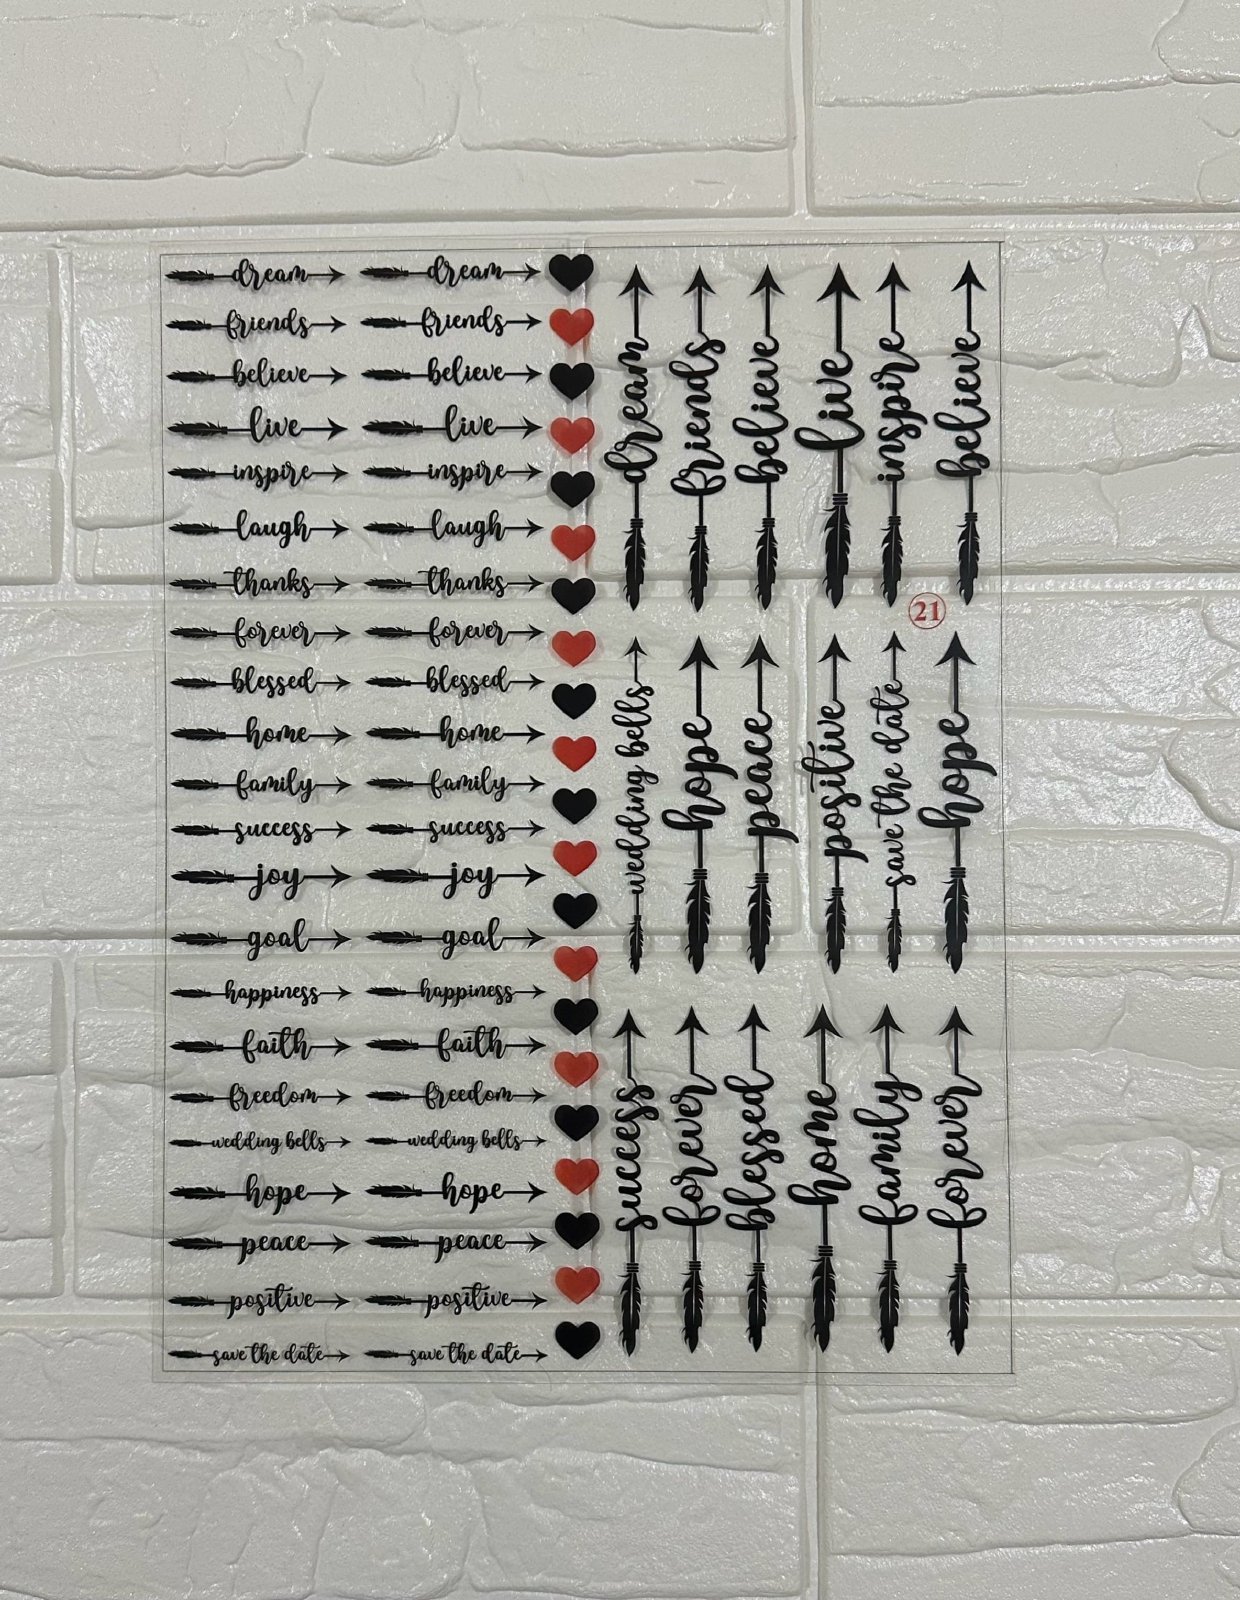 dream dream
friends friends
believe believe
live live
inspire inspire
laugh laugh
thanks thanks
forever forever
blessed blessed
home home
family family
success success
joy joy
goal goal
happiness happiness
faith faith
freedom freedom
wedding bells wedding bells
hope hope
peace peace
positive positive
save the date save the date
dream
friends
believe
live
inspire
believe
21
wedding bells
hope
peace
positive
save the date
hope
success
forever
blessed
home
family
forever